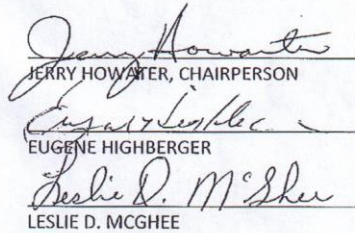 Jerry Howarter
JERRY HOWATER, CHAIRPERSON
EUGENE HIGHBERGER
Leslie D. McGhee
LESLIE D. MCGHEE